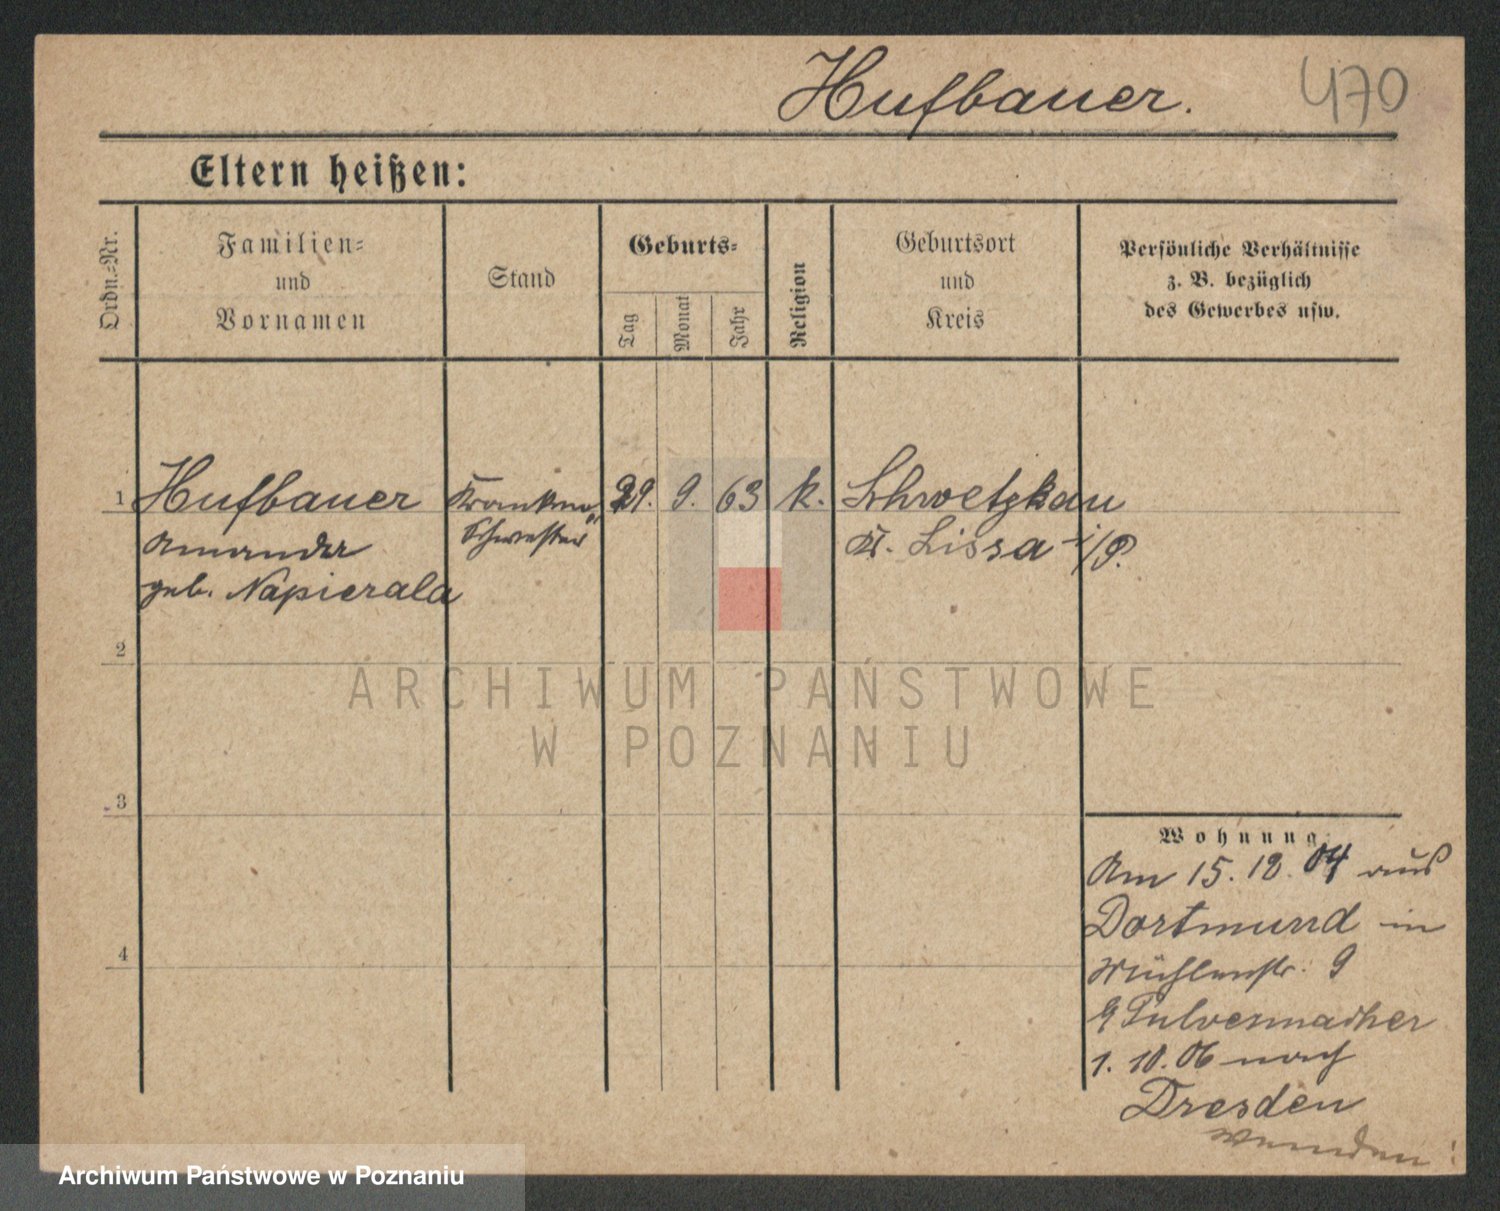 Hufbauer. 470
Eltern heißen:
Ordn.-Nr.
Familien-
und
Vornamen
Stand
Geburts-
Tag
Monat
Jahr
Religion
Geburtsort
und
Kreis
Persönliche Verhältnisse
z. B. bezüglich
des Gewerbes usw.
1 Hufbauer Kranken 29. 9. 63 k. Schwetzkau
Amanda Schwester Kr. Lissa i/P.
geb. Napierala
2
3
4
Wohnung
Am 15. 12. 04 aus
Dortmund in
Mühlenstr. 9
b Pulvermacher
1. 10. 06 nach
Dresden
wenden!
ARCHIWUM PAŃSTWOWE
W POZNANIU
Archiwum Państwowe w Poznaniu